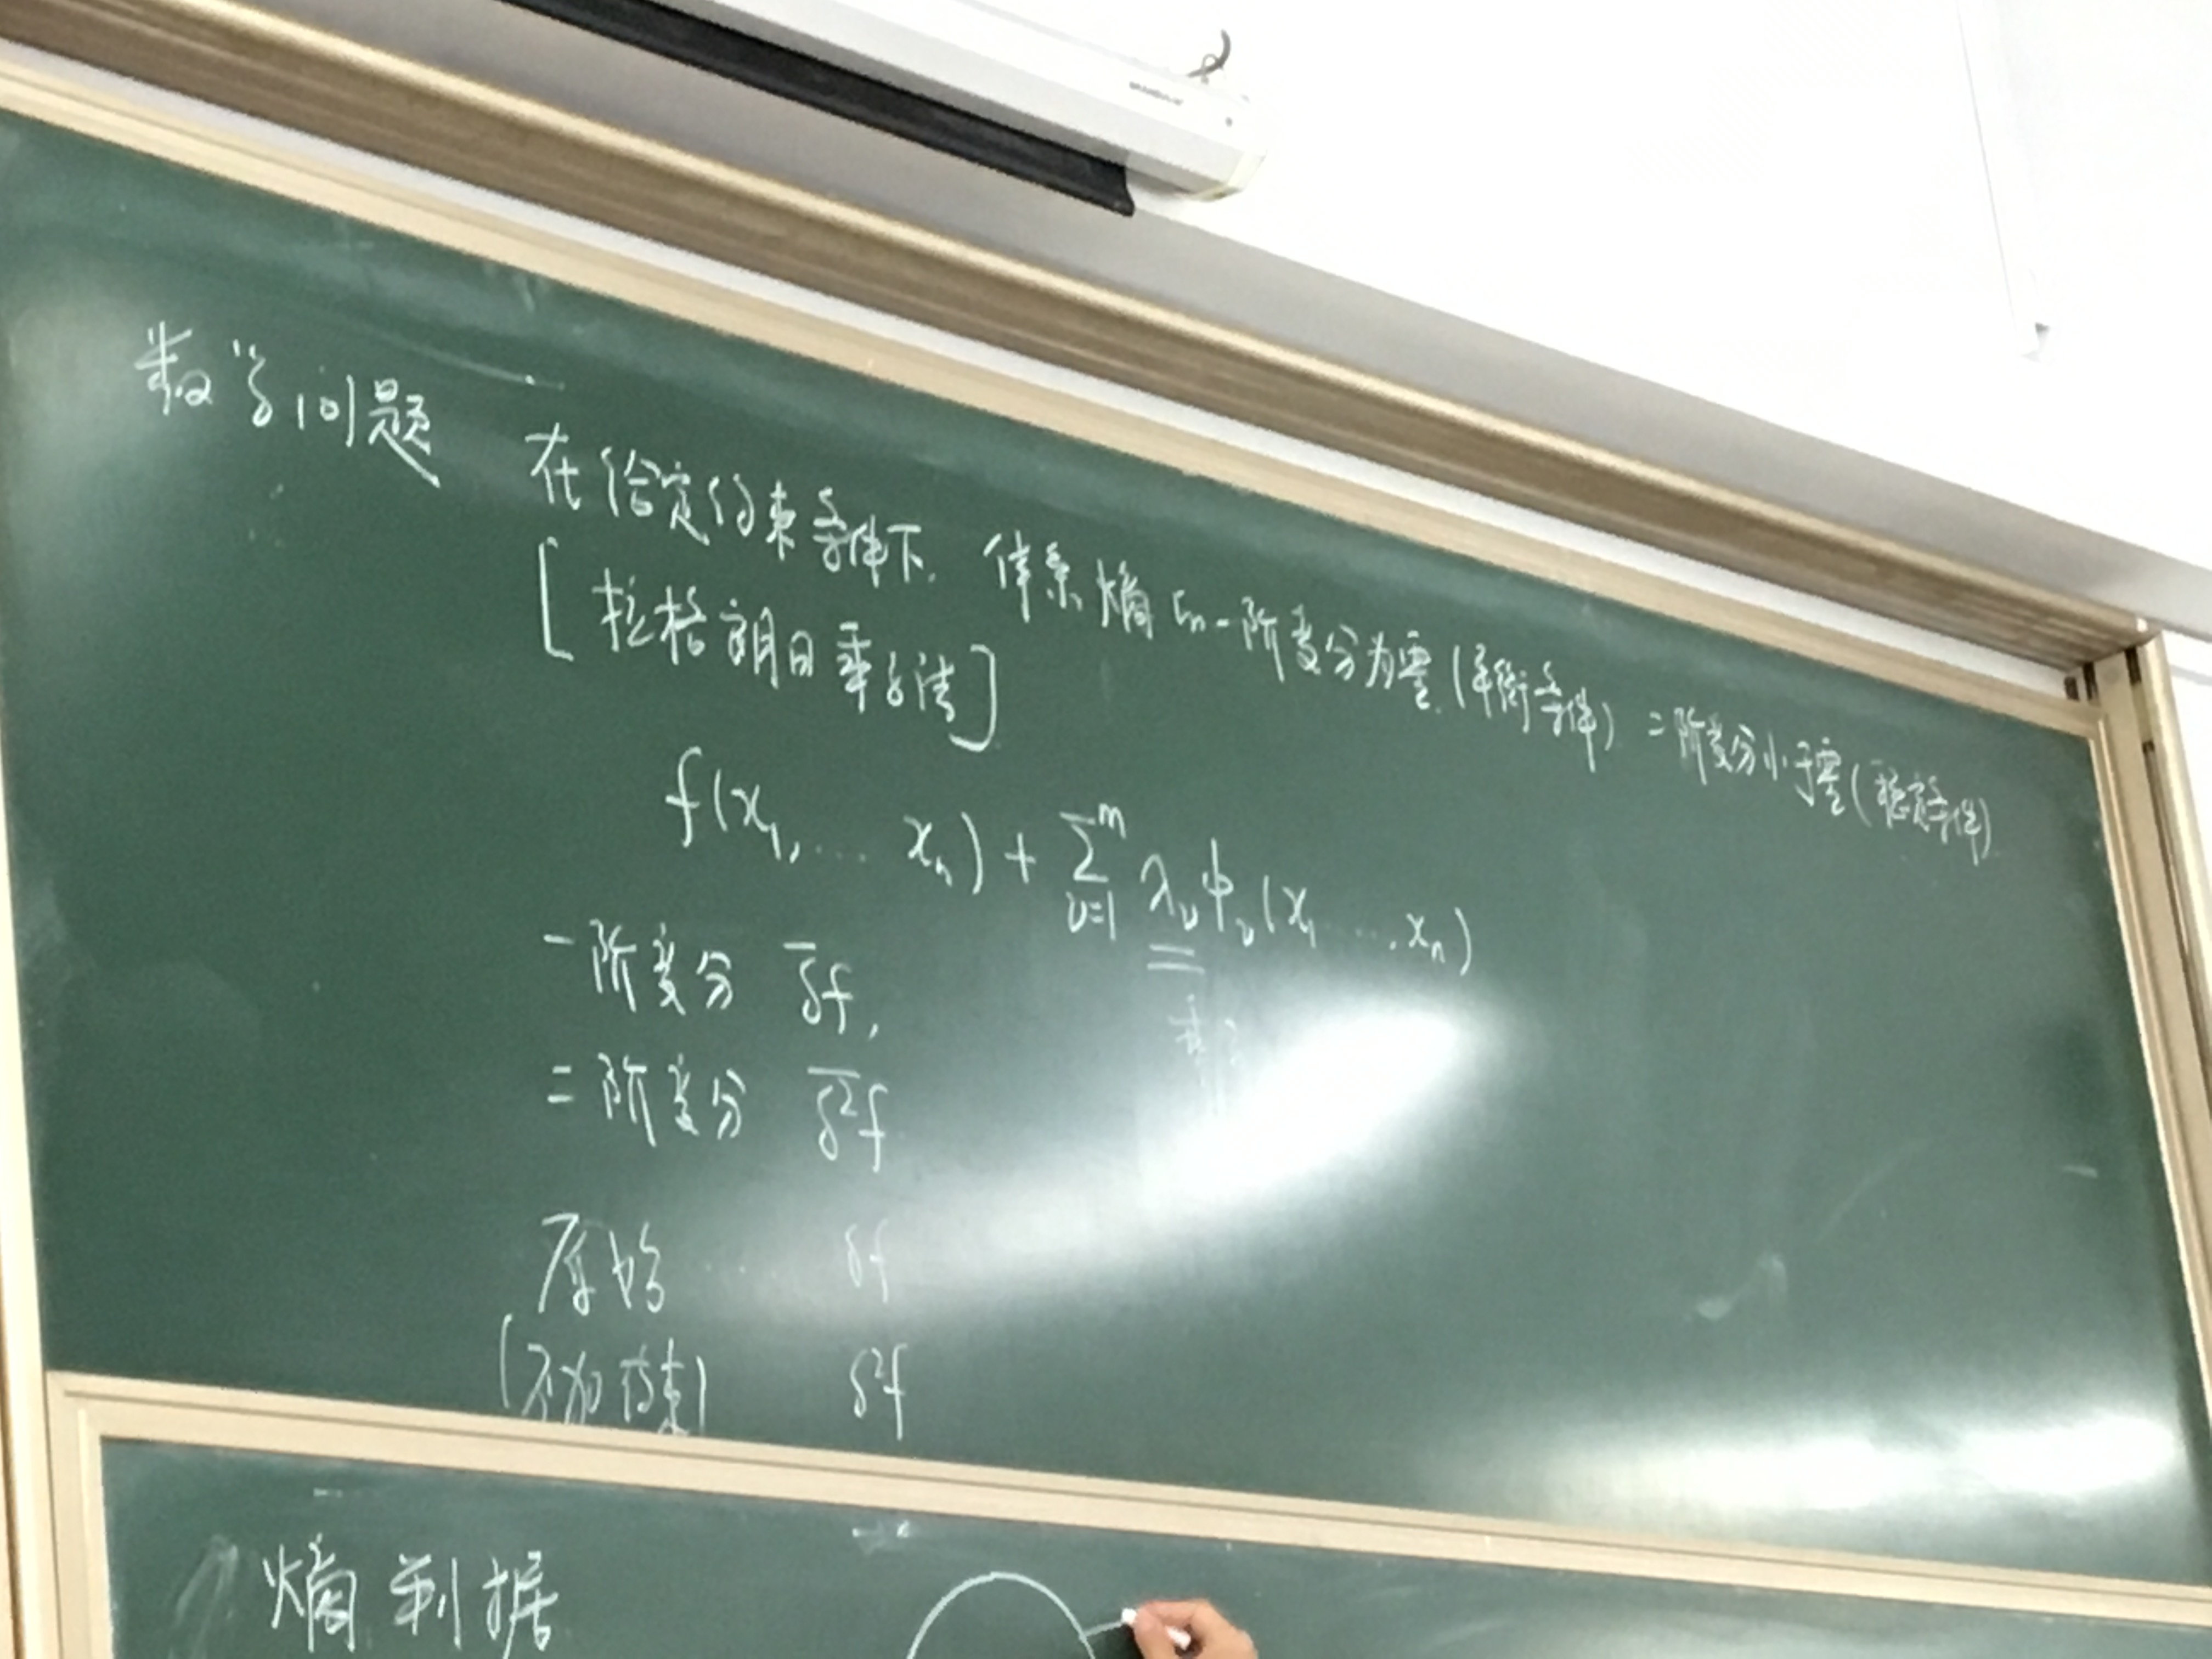 数学问题
在给定约束条件下, 体系熵的一阶变分为零 (平衡条件) 二阶变分小于零 (稳定条件)
[拉格朗日乘子法]
f(x₁, … xₙ) + ∑_{ν=1}^{m} λ_ν φ_ν (x₁ …, xₙ)
一阶变分 \overline{δ}f,
二阶变分 \overline{δ²}f
原始 …… δf
(不加约束) δ²f
熵判据